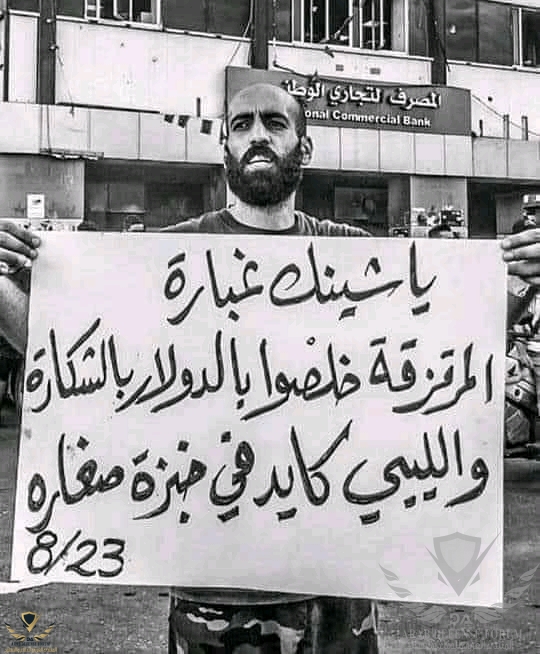 المصرف لتجاري الوطني
onal Commercial Bank
ياشينك غبارة
المرتزقة خلصوا بالدولار بالشكارة
والليبي كايد في خبزة صغاره
8/23